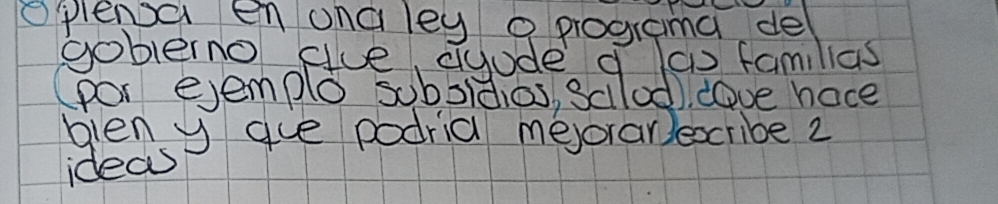 piensa en una ley o programa del
gobierno que ayude a las familias
(por ejemplo subsidios, salud). ¿Que hace
bien y que podria mejorar) escribe 2
ideas